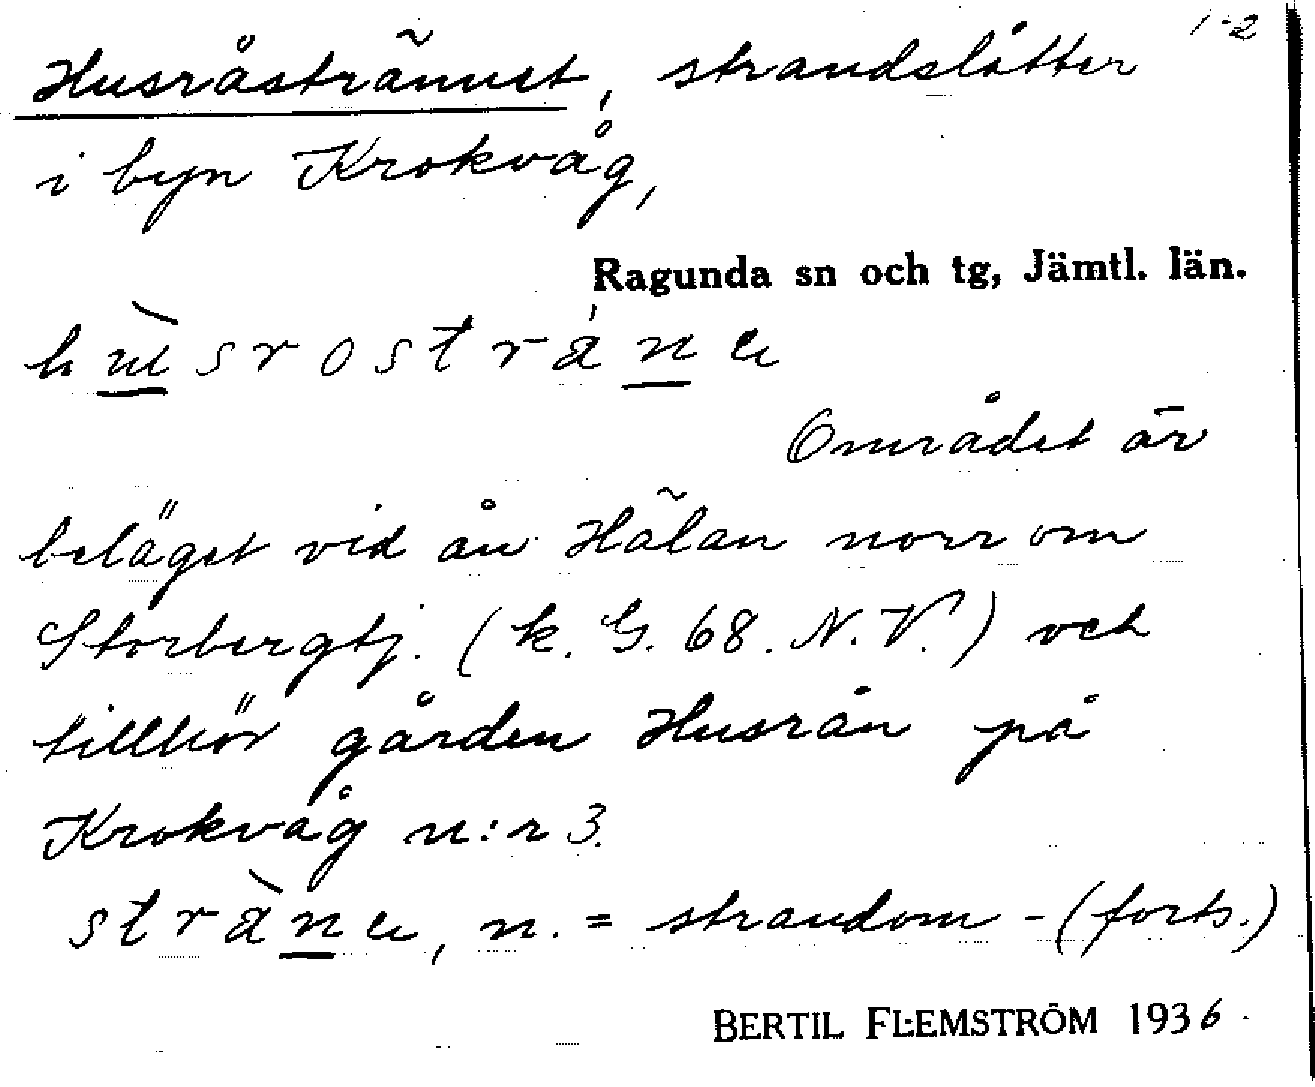 1-2
Husråstrännet, strandslåtter
i byn Krokvåg,
Ragunda sn och tg, Jämtl. län.
Området är
beläget vid ån Hälan norr om
Storbergtj. (k. G. 68. N.V.) och
tillhör gården Husrån på
Krokvåg n:r 3.
n. = strandom - (forts.)
BERTIL FLEMSTRÖM 1936